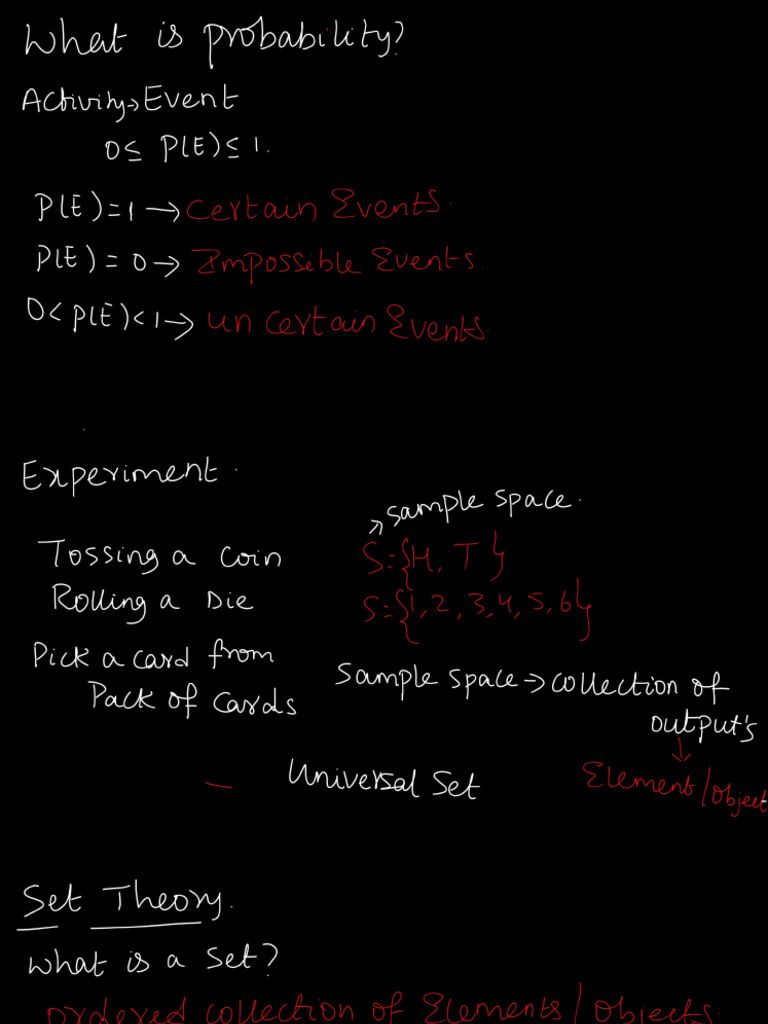 What is probability?
Activity→Event
0≤ P(E)≤ 1.
P(E)=1→Certain Events.
P(E)= 0→ Impossible Events.
0<P(E)<1→ un certain Events.
Experiment.
→sample space.
Tossing a coin S={H, T}
Rolling a Die S={1,2,3,4,5,6}
Pick a card from
Pack of Cards
Sample space→collection of
output's
↓
Universal Set
Element/object
Set Theory.
What is a Set?
ordered collection of Elements/objects.